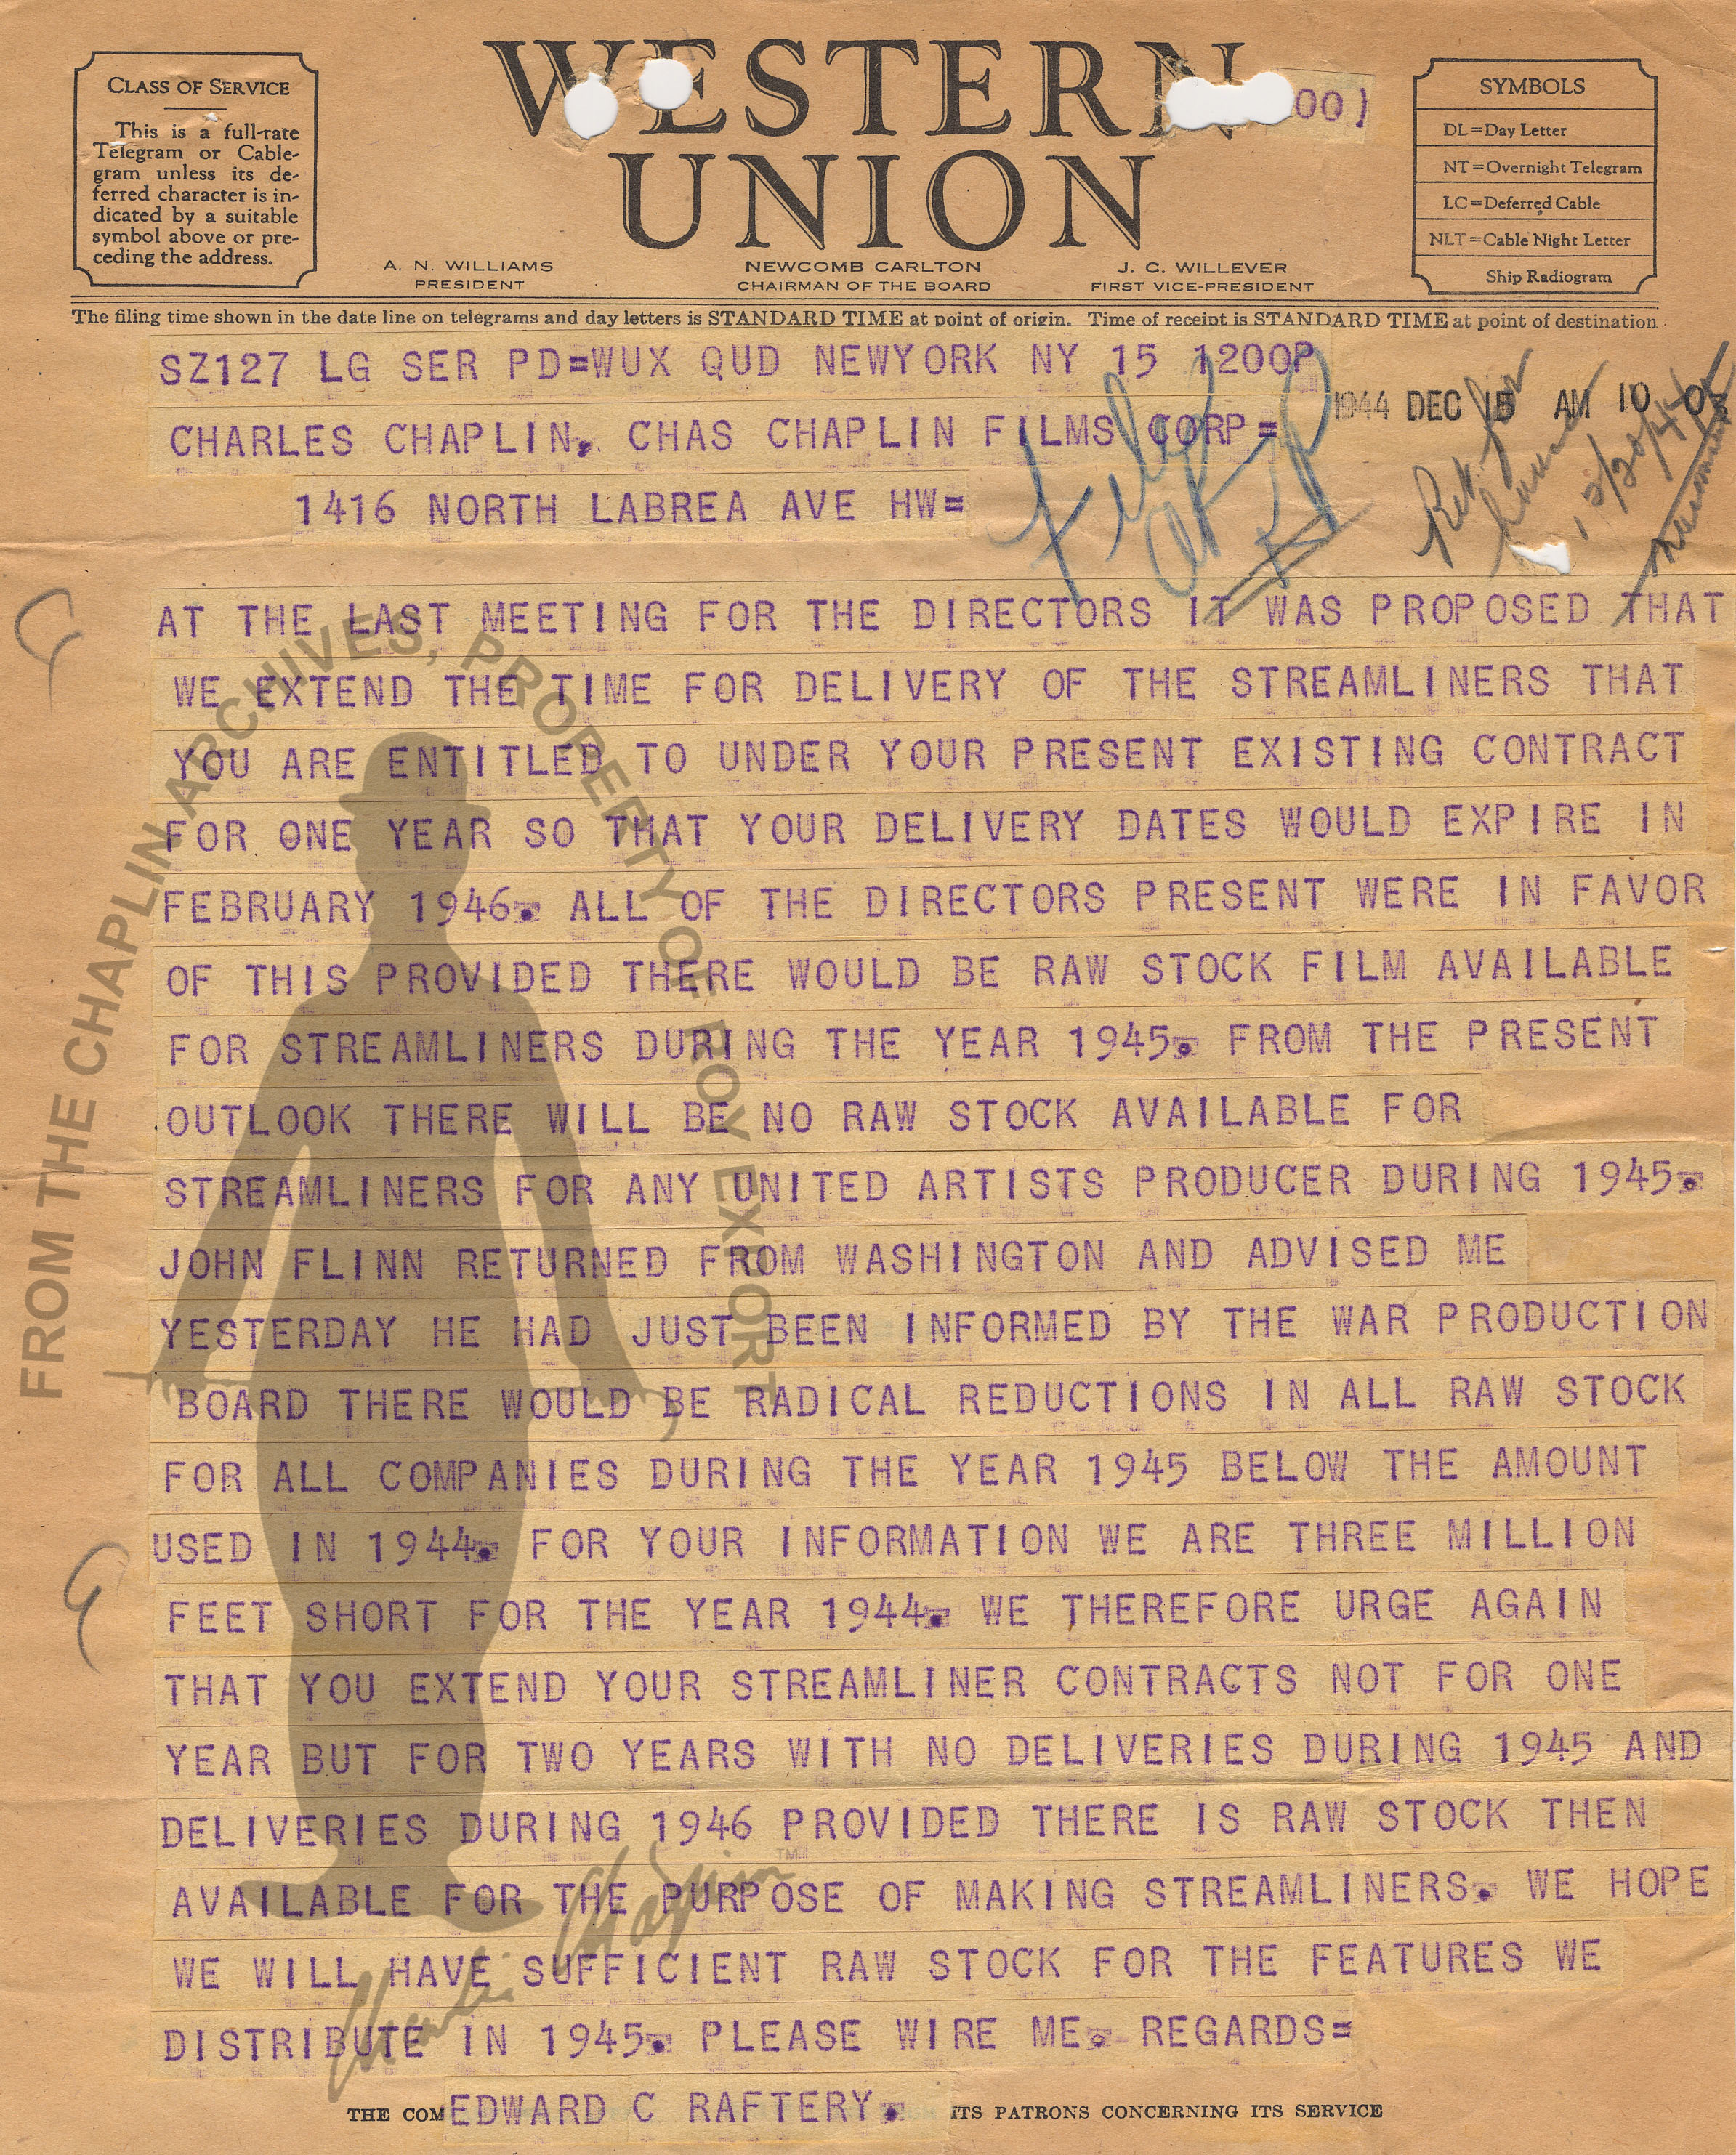 CLASS OF SERVICE
This is a full-rate
Telegram or Cable-
gram unless its de-
ferred character is in-
dicated by a suitable
symbol above or pre-
ceding the address.
WESTERN
UNION
00)
A. N. WILLIAMS
PRESIDENT
NEWCOMB CARLTON
CHAIRMAN OF THE BOARD
J. C. WILLEVER
FIRST VICE-PRESIDENT
SYMBOLS
DL=Day Letter
NT=Overnight Telegram
LC=Deferred Cable
NLT=Cable Night Letter
Ship Radiogram
The filing time shown in the date line on telegrams and day letters is STANDARD TIME at point of origin. Time of receipt is STANDARD TIME at point of destination
SZ127 LG SER PD=WUX QUD NEWYORK NY 15 1200P
1944 DEC 15 AM 10 05
CHARLES CHAPLIN, CHAS CHAPLIN FILMS CORP=
1416 NORTH LABREA AVE HW=
File
12/20/44
AT THE LAST MEETING FOR THE DIRECTORS IT WAS PROPOSED THAT
WE EXTEND THE TIME FOR DELIVERY OF THE STREAMLINERS THAT
YOU ARE ENTITLED TO UNDER YOUR PRESENT EXISTING CONTRACT
FOR ONE YEAR SO THAT YOUR DELIVERY DATES WOULD EXPIRE IN
FEBRUARY 1946. ALL OF THE DIRECTORS PRESENT WERE IN FAVOR
OF THIS PROVIDED THERE WOULD BE RAW STOCK FILM AVAILABLE
FOR STREAMLINERS DURING THE YEAR 1945. FROM THE PRESENT
OUTLOOK THERE WILL BE NO RAW STOCK AVAILABLE FOR
STREAMLINERS FOR ANY UNITED ARTISTS PRODUCER DURING 1945.
JOHN FLINN RETURNED FROM WASHINGTON AND ADVISED ME
YESTERDAY HE HAD JUST BEEN INFORMED BY THE WAR PRODUCTION
BOARD THERE WOULD BE RADICAL REDUCTIONS IN ALL RAW STOCK
FOR ALL COMPANIES DURING THE YEAR 1945 BELOW THE AMOUNT
USED IN 1944. FOR YOUR INFORMATION WE ARE THREE MILLION
FEET SHORT FOR THE YEAR 1944. WE THEREFORE URGE AGAIN
THAT YOU EXTEND YOUR STREAMLINER CONTRACTS NOT FOR ONE
YEAR BUT FOR TWO YEARS WITH NO DELIVERIES DURING 1945 AND
DELIVERIES DURING 1946 PROVIDED THERE IS RAW STOCK THEN
AVAILABLE FOR THE PURPOSE OF MAKING STREAMLINERS. WE HOPE
WE WILL HAVE SUFFICIENT RAW STOCK FOR THE FEATURES WE
DISTRIBUTE IN 1945. PLEASE WIRE ME. REGARDS=
EDWARD C RAFTERY.
THE COM ITS PATRONS CONCERNING ITS SERVICE
FROM THE CHAPLIN ARCHIVES, PROPERTY OF ROY EXPORT
Charlie Chaplin TM